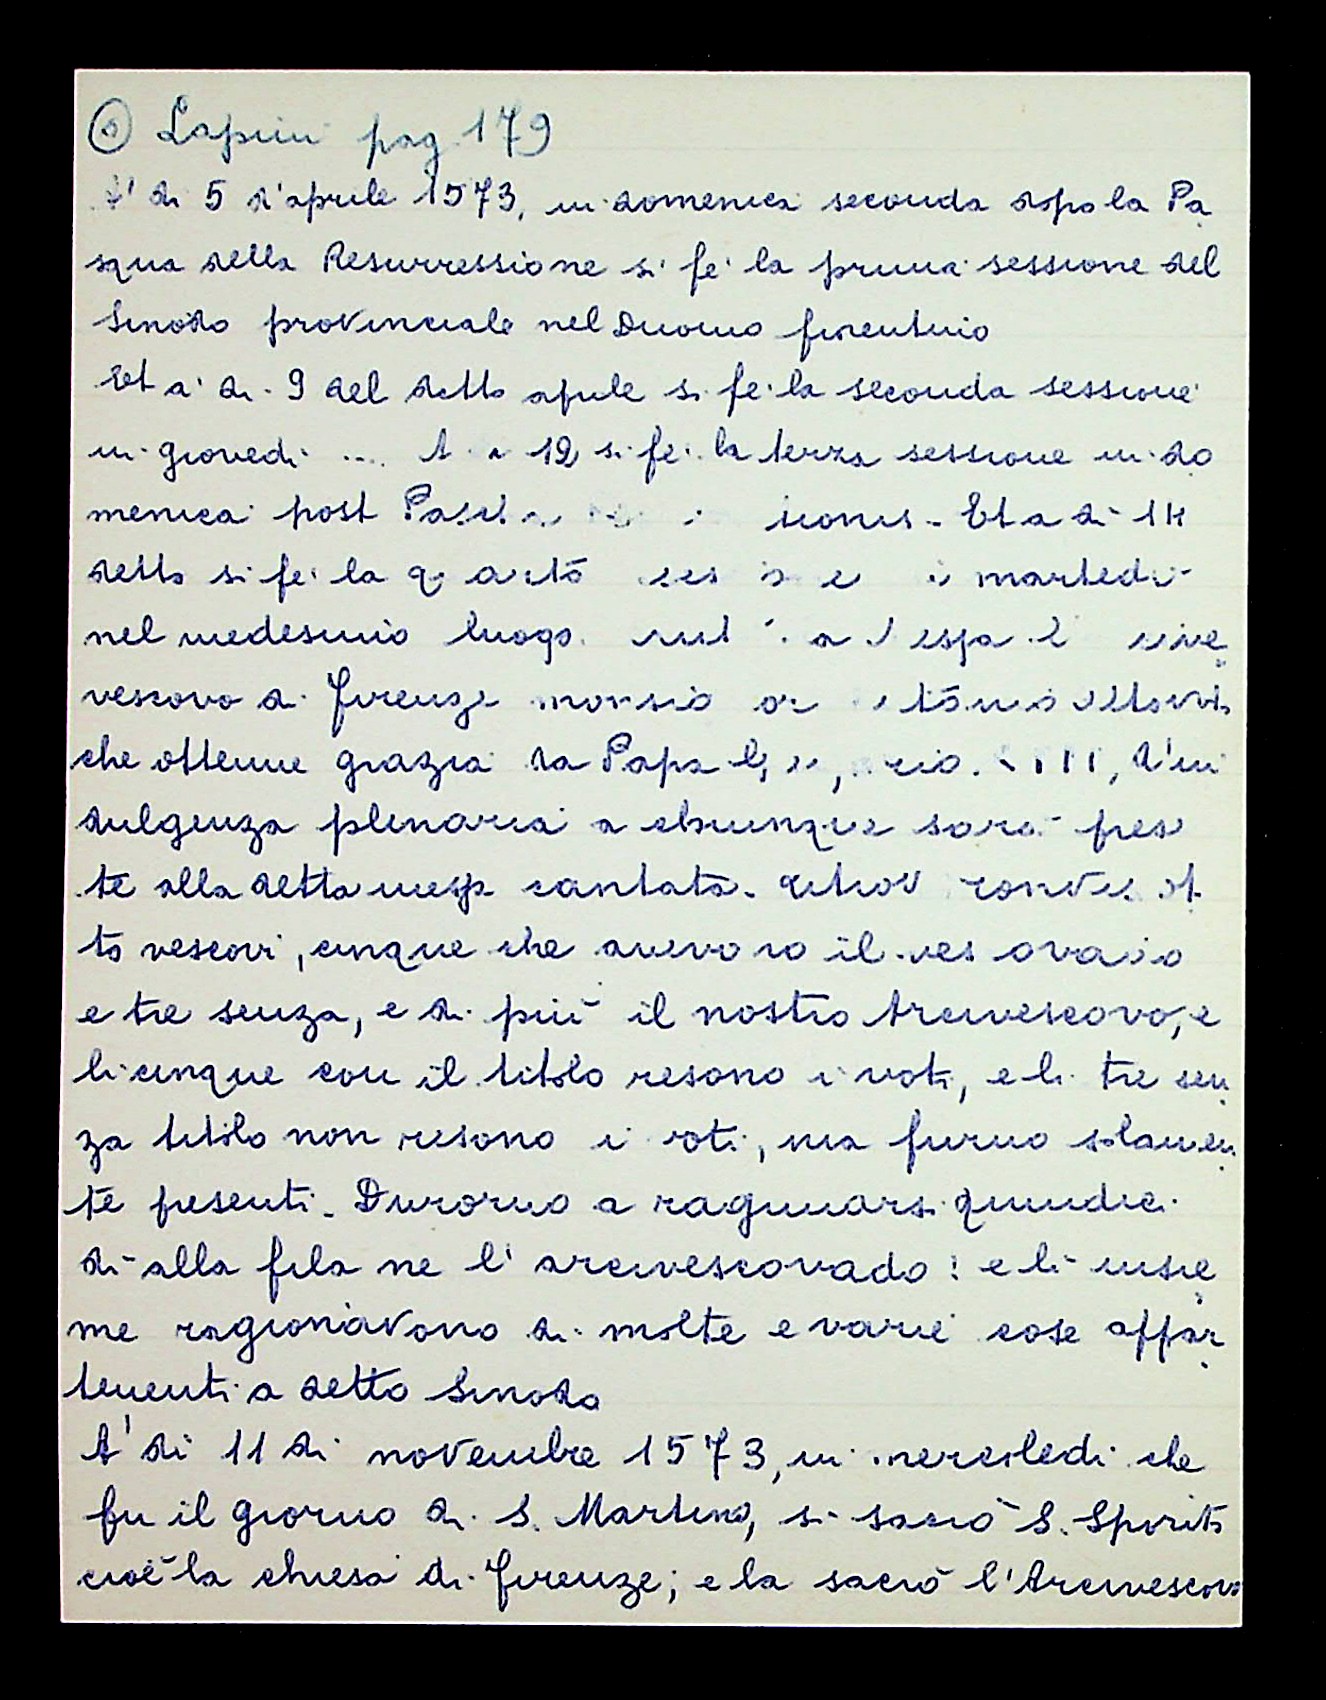 Lapini pag. 179
A' di 5 d'aprile 1573, in domenica seconda dopo la Pa
squa della Resurressione si fe' la prima sessione del
Sinodo provinciale nel Duomo fiorentino
Et a' di 9 del detto aprile si fe' la seconda sessione
in giovedi ... A 12 si fe' la terza sessione in do
menica post - Et a di 14
detto si fe' la quarta martedi
nel medesimo luogo.
vescovo di Firenze
che ottenne grazia da Papa XIII, d'in
dulgenza plenaria a chiunque sarà
te alla detta cantata.
to vescovi, cinque che avevono il vescovado
e tre senza, e di più il nostro Arcivescovo, e
li cinque con il titolo resono i voti, e li tre sen
za titolo non resono i voti, ma furno solamen
te presenti. Durorno a ragunarsi quindici
di alla fila ne l' arcivescovado: e li insie
me ragionavono di molte e varie cose appar
tenenti a detto Sinodo
A' di 11 di novembre 1573, in mercoledi che
fu il giorno di S. Martino, si sacrò S. Spirito
cioè la chiesa di Firenze; e la sacrò l'Arcivescovo